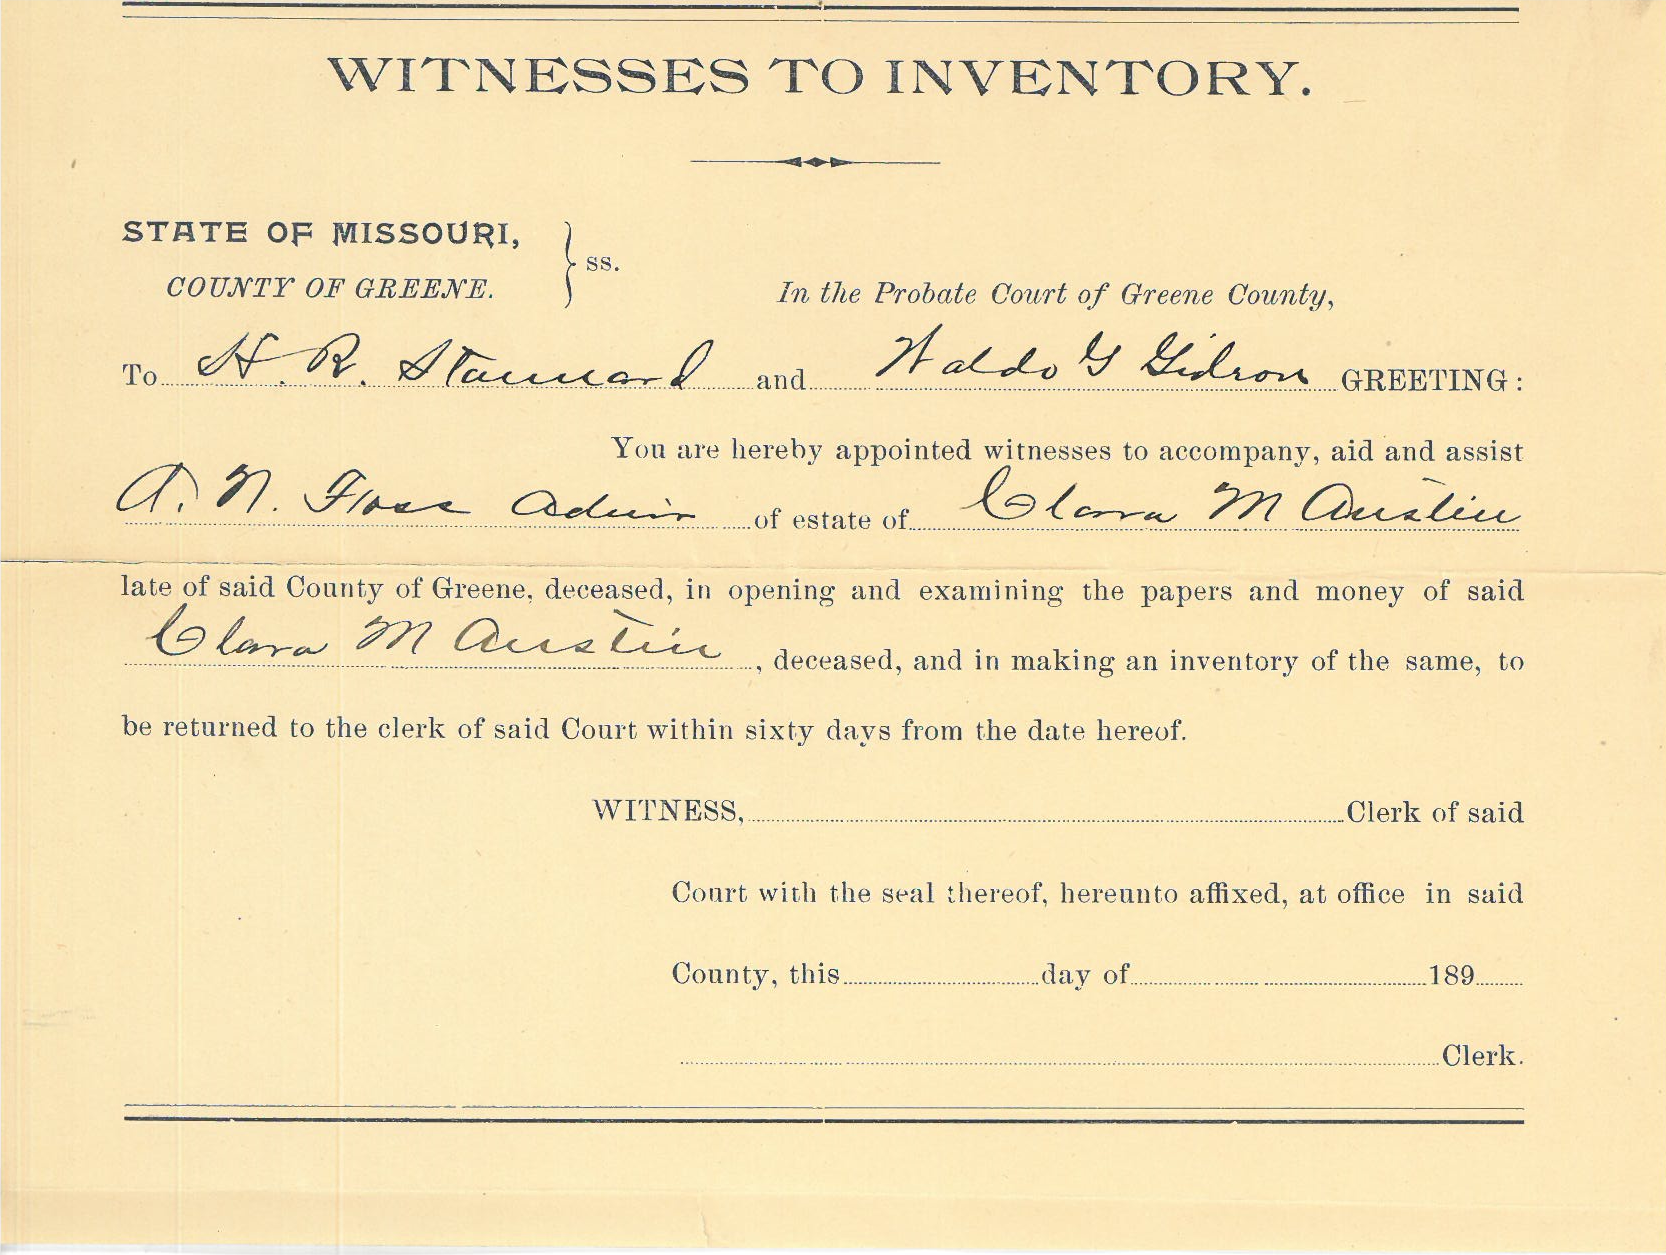 WITNESSES TO INVENTORY.
STATE OF MISSOURI,
COUNTY OF GREENE.
ss.
In the Probate Court of Greene County,
To H. R. Stannard and Waldo G Gideon GREETING:
You are hereby appointed witnesses to accompany, aid and assist
A. N. Admr of estate of Clara M Austin
late of said County of Greene, deceased, in opening and examining the papers and money of said
Clara M Austin, deceased, and in making an inventory of the same, to
be returned to the clerk of said Court within sixty days from the date hereof.
WITNESS, Clerk of said
Court with the seal thereof, hereunto affixed, at office in said
County, this day of 189
Clerk.